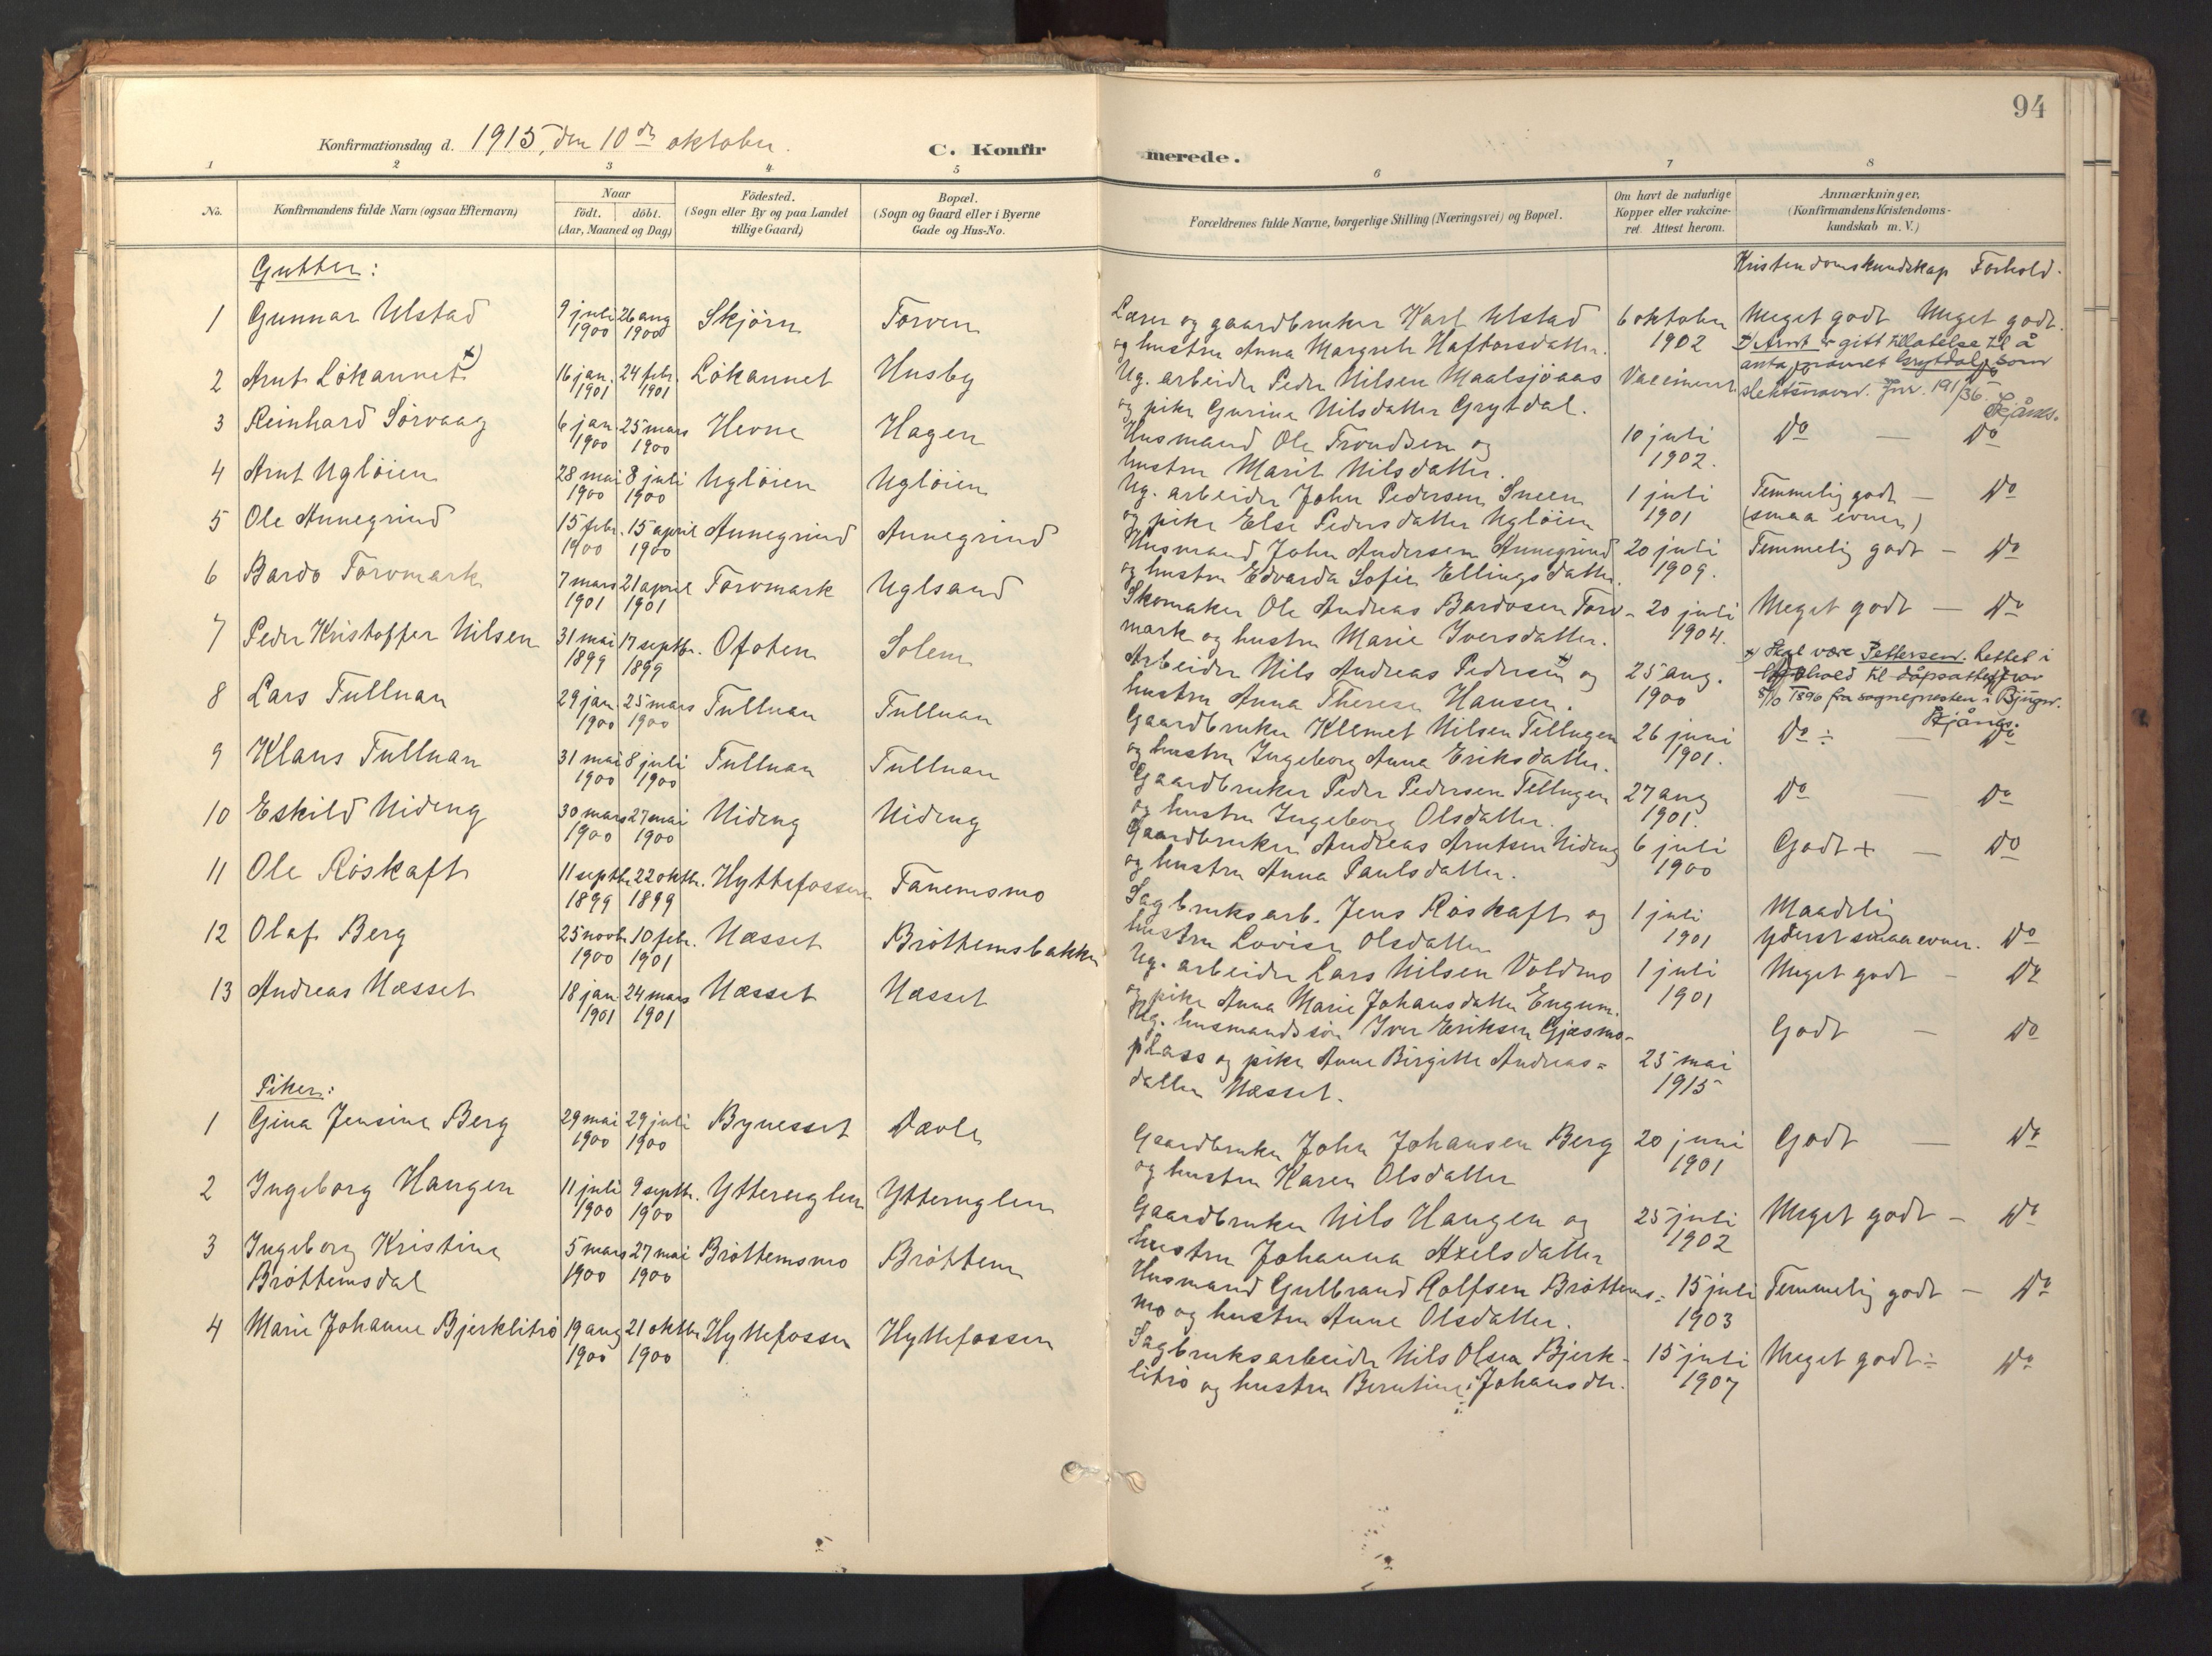 94
Konfirmationsdag d. 1915, den 10de oktober.
C. Konfirmerede.
1 2 3 4 5 6 7 8
No.
Konfirmandens fulde Navn (ogsaa Efternavn)
Naar
födt. döbt.
(Aar, Maaned og Dag)
Födested.
(Sogn eller By og paa Landet
tillige Gaard)
Bopæl.
(Sogn og Gaard eller i Byerne
Gade og Hus-No.
Forældrenes fulde Navne, borgerlige Stilling (Næringsvei) og Bopæl.
Om havt de naturlige
Kopper eller vakcine-
ret. Attest herom.
Anmærkninger.
(Konfirmandens Kristendoms-
kundskab m. V.)
Kristendomskundskap Forhold.
Gutter:
1 Gunnar Ulstad 9 juli 26 aug Skjörn Torven
1900 1900
Lærer og gaardbruker Karl Ulstad 6 oktober Meget godt Meget godt.
og hustru Anna Margrete Haftorsdatter. 1902
2 Arnt Lökaunet x) 16 jan. 24 febr. Lökaunet Husby
1901 1901
Ug. arbeider Peder Nilsen Maalsjöaas Vaccineret
og pike Gurine Nilsdatter Grytdal.
x) Arnt er gitt tillatelse til å
anta navnet Grytdal som
slektsnavn. Jnr. 191/36.
3 Reinhard Sörvaag 6 jan. 25 mars Hevne Hagen
1900 1900
Husmand Ole Trondsen og 10 juli Do — Do
hustru Marit Nilsdatter. 1902.
4 Arnt Uglöien 28 mai 8 juli Uglöien Uglöien
1900 1900
Ug. arbeider John Pedersen Sneen 1 juli Temmelig godt — Do
og pike Else Pedersdatter Uglöien 1901 (smaa evner)
5 Ole Annegrind 15 febr. 15 april Annegrind Annegrind
1900 1900
Husmand John Andersen Annegrind 20 juli Temmelig godt — Do
og hustru Edvarda Sofie Ellingsdatter. 1909.
6 Bardo Torvmark 7 mars 21 april Torvmark Uglsand
1901 1901
Skomaker Ole Andreas Bardosen Torv- 20 juli Meget godt — Do
mark og hustru Marie Iversdatter. 1904.
7 Peder Kristoffer Nilsen 31 mai 17 septbr. Ofoten Solem
1899 1899
Arbeider Nils Andreas Pedersen x) og 25 aug.
hustru Anna Therese Hansen. 1900
x) Skal være Pettersen. Rettet i
henhold til dåpsattest av
8/10 1896 fra sognepresten i Bjugn.
8 Lars Tulluan 29 jan. 25 mars Tulluan Tulluan
1900 1900
Gaardbruker Klemet Nilsen Tellugen 26 juni Do ÷ — Do
og hustru Ingeborg Anna Eriksdatter. 1901.
9 Klaus Tulluan 31 mai 8 juli Tulluan Tulluan
1900 1900
Gaardbruker Peder Pedersen Tellugen 27 aug Do — Do
og hustru Ingeborg Olsdatter. 1901.
10 Eskild Nideng 30 mars 27 mai Nideng Nideng
1900 1900
Gaardbruker Andreas Arntsen Nideng 6 juli Godt + — Do
og hustru Anna Paulsdatter. 1900
11 Ole Röskaft 11 septbr. 22 oktbr. Hyttefossen Tanemsmo
1899 1899
Sagbruksarb. Jens Röskaft og 1 juli Maadelig
hustru Lovise Olsdatter 1901 yderst smaa evner. Do
12 Olaf Berg 25 novbr. 10 febr. Næsset Bröttemsbakken
1900 1901
Ug. arbeider Lars Nilsen Voldmo 1 juli Meget godt — Do
og pike Anna Marie Johansdatter Engum. 1901
13 Andreas Næsset 18 jan. 24 mars Næsset Næsset
1901 1901
Ug. husmandssön Iver Eriksen Gjæsmo- Godt — Do
plass og pike Anne Birgitte Andreas- 25 mai
datter Næsset. 1915
Piker:
1 Gina Jensine Berg 29 mai 29 juli Bynesset Dævle
1900 1900
Gaardbruker John Johansen Berg 20 juni Godt — Do
og hustru Karen Olsdatter 1901
2 Ingeborg Haugen 11 juli 9 septbr. Ytteruglen Ytteruglen
1900 1900
Gaardbruker Nils Haugen og 25 juli Meget godt — Do
hustru Johanna Axelsdatter 1902
3 Ingeborg Kristine 5 mars 27 mai Bröttemsmo Bröttem
Bröttemsdal 1900 1900
Husmand Gulbrand Rolfsen Bröttems- 15 juli Temmelig godt — Do
mo og hustru Anne Olsdatter. 1903
4 Marie Johanne Bjerklitrö 19 aug 21 oktbr Hyttefossen Hyttefossen
1900 1900
Sagbruksarbeider Nils Olsen Bjerk- 15 juli Meget godt ÷ Do
litrö og hustru Berntine Johansdtr. 1907